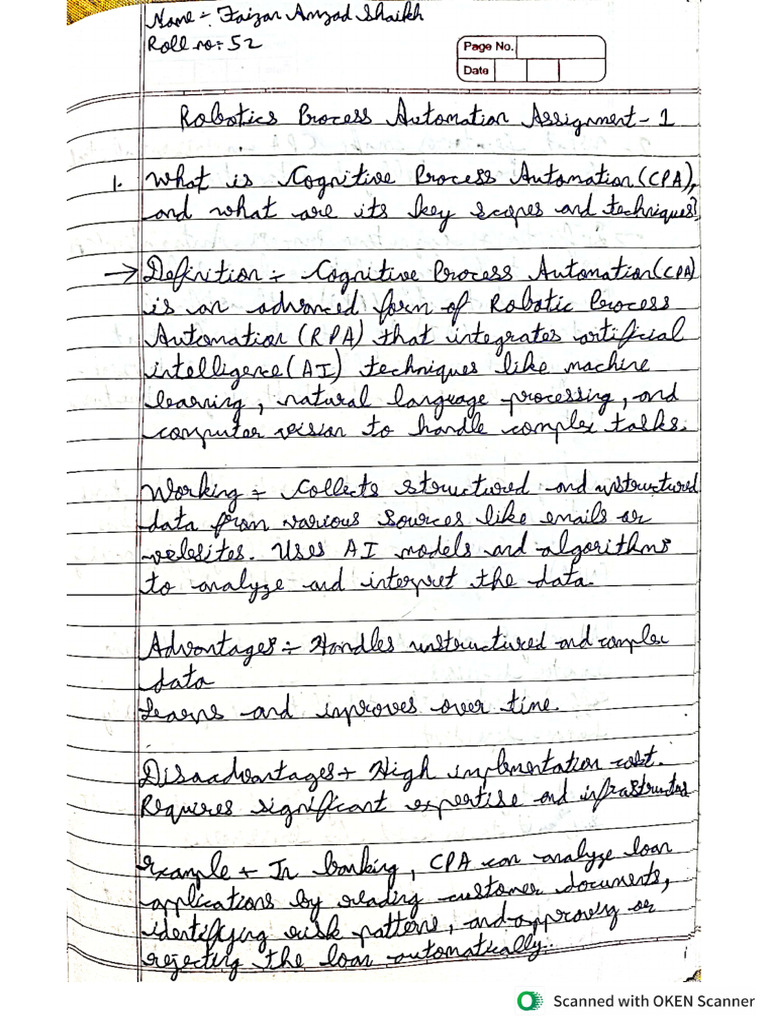 Name :- Faizan Amzad Shaikh
Roll no:- 52
Page No.
Date
Robotics Process Automation Assignment - 1
1. What is Cognitive Process Automation (CPA),
and what are its key scopes and techniques?
→ Definition :- Cognitive Process Automation (CPA)
is an advanced form of Robotic Process
Automation (RPA) that integrates artificial
intelligence (AI) techniques like machine
learning, natural language processing, and
computer vision to handle complex talks.
Working :- Collects structured and unstructured
data from various sources like emails or
websites. Uses AI models and algorithms
to analyze and interpret the data.
Advantages :- Handles unstructured and complex
data
Learns and improves over time.
Disadvantages :- High implementation cost.
Requires significant expertise and
Example :- In banking, CPA can analyze loan
applications by reading customer documents,
identifying risk patterns, and approving or
rejecting the loan automatically.
Scanned with OKEN Scanner